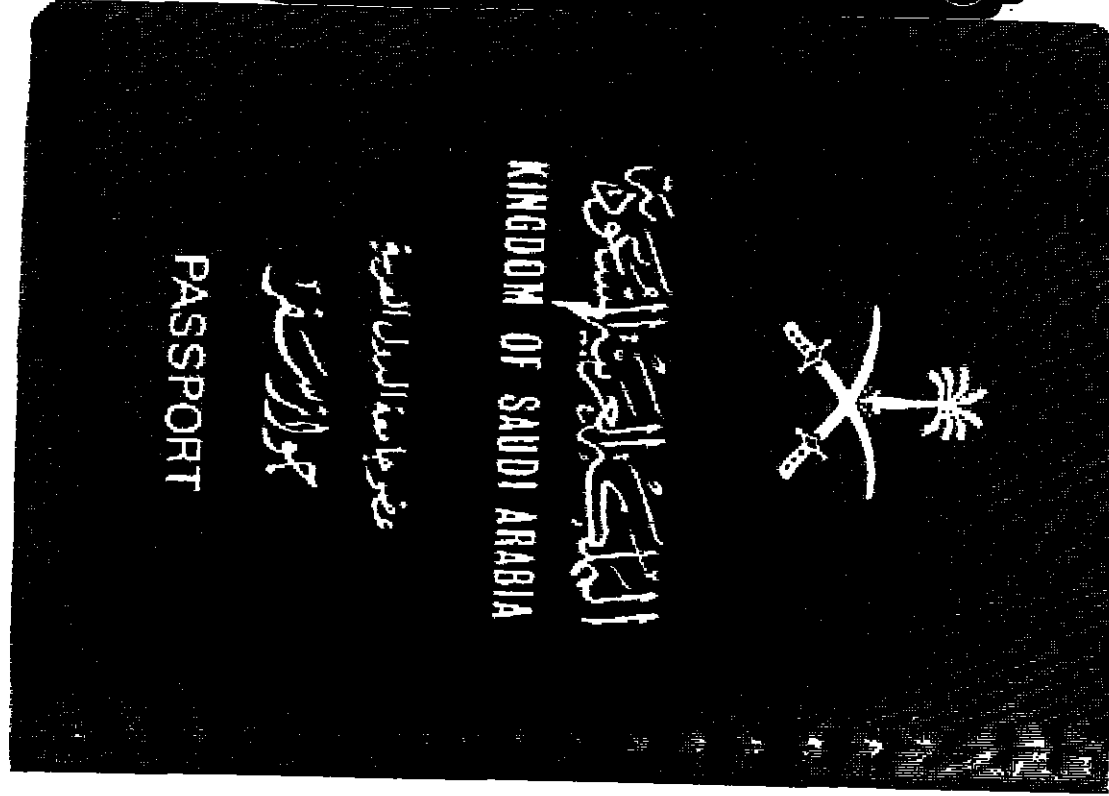 المملكة العربية السعودية
KINGDOM OF SAUDI ARABIA
عضو جامعة الدول العربية
جواز سفر
PASSPORT